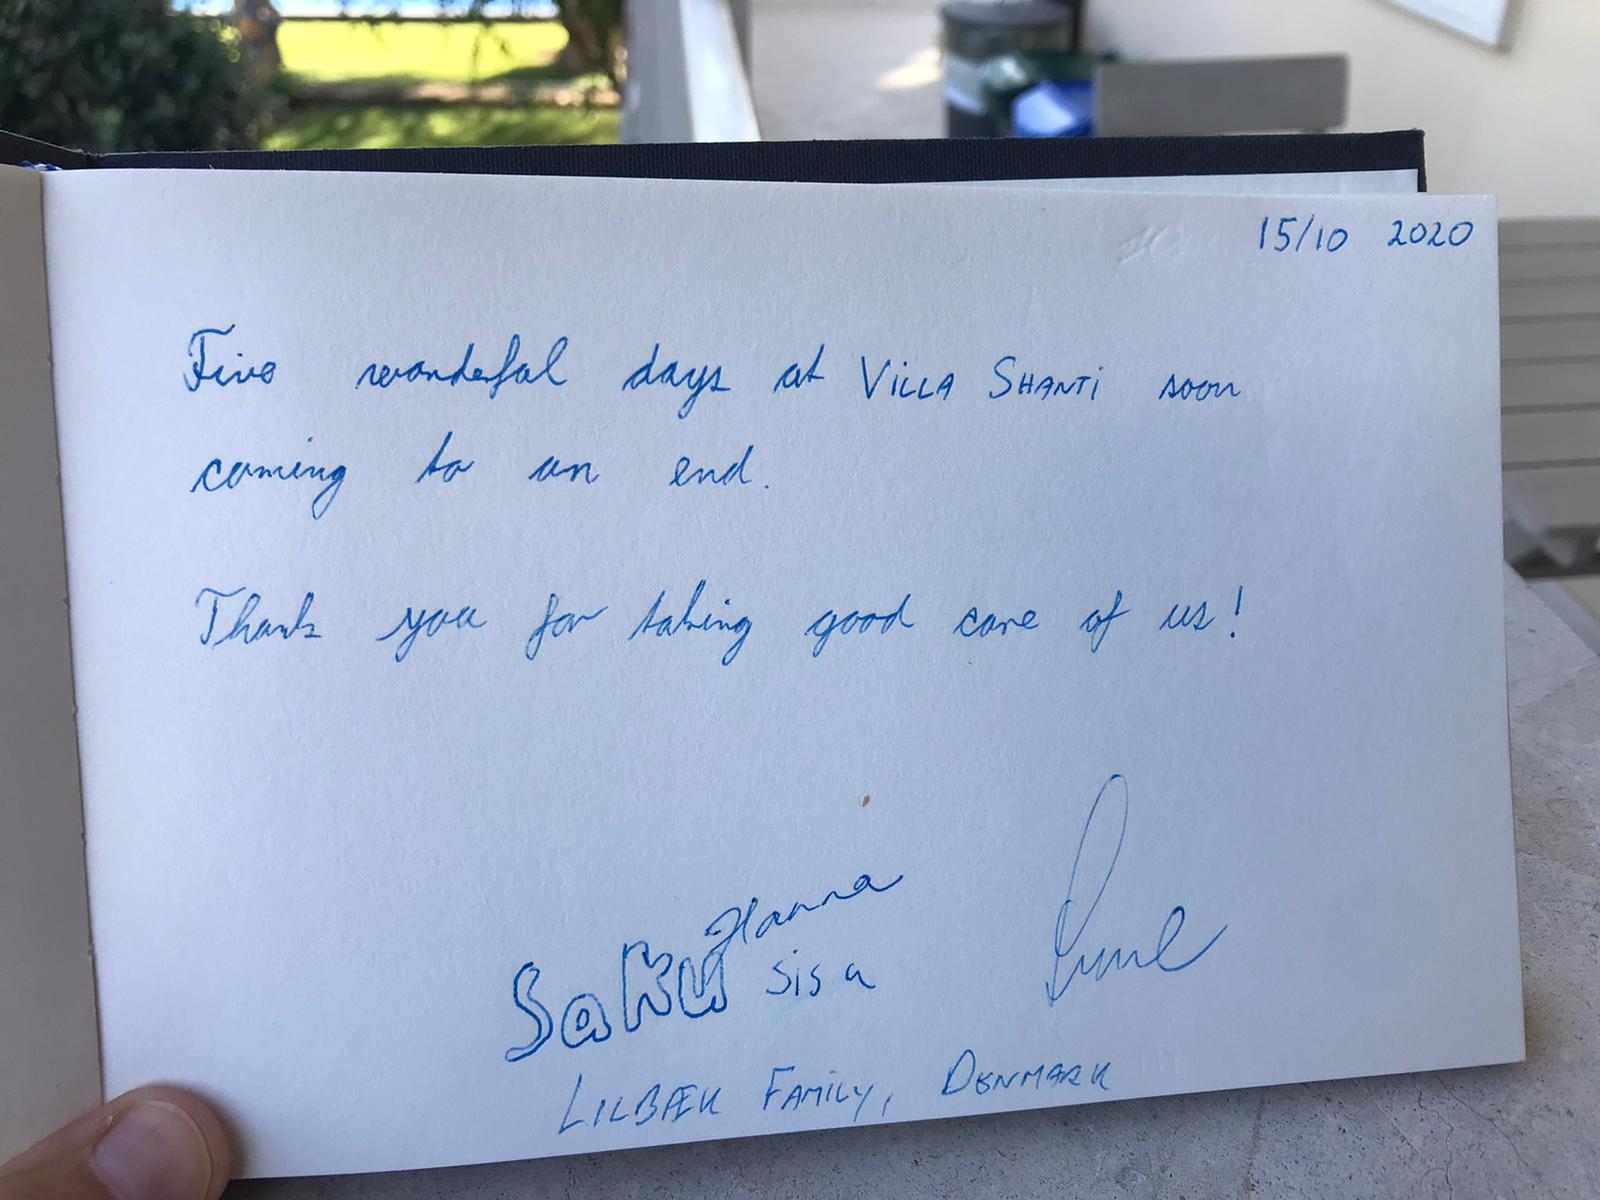 15/10 2020
Five wonderful days at VILLA SHANTI soon
coming to an end.
Thank you for taking good care of us!
Hanna
Saku Sisa
LILBÆK FAMILY, DENMARK